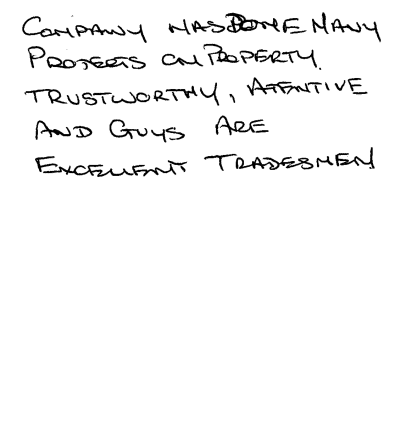 COMPANY HAS DONE MANY
PROJECTS ON PROPERTY.
TRUSTWORTHY, ATENTIVE
AND GUYS ARE
EXCELLENT TRADESMEN